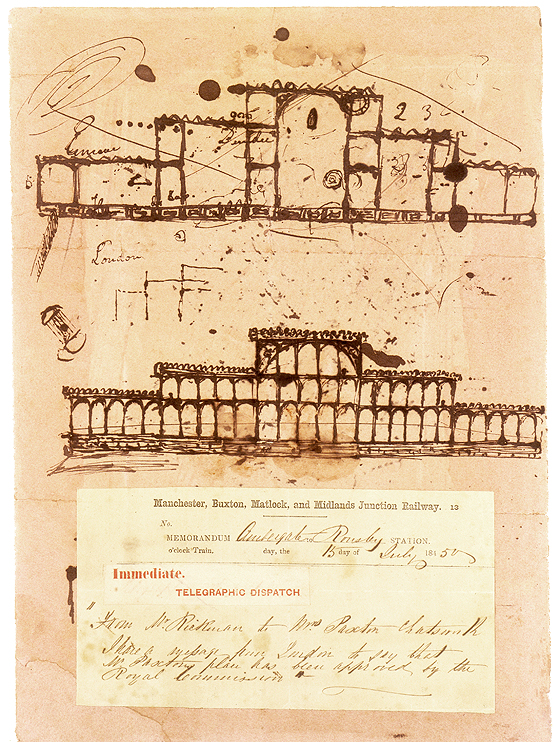 2 3
London
Manchester, Buxton, Matlock, and Midlands Junction Railway. 13
No.
MEMORANDUM Rowsley STATION.
o'clock Train. day, the 15 day of July 1850
Immediate.
TELEGRAPHIC DISPATCH
"From Mr Rickman to Mrs Paxton Chatsworth
I have a message from London to say that
Mr Paxtons plan has been approved by the
Royal Commission"